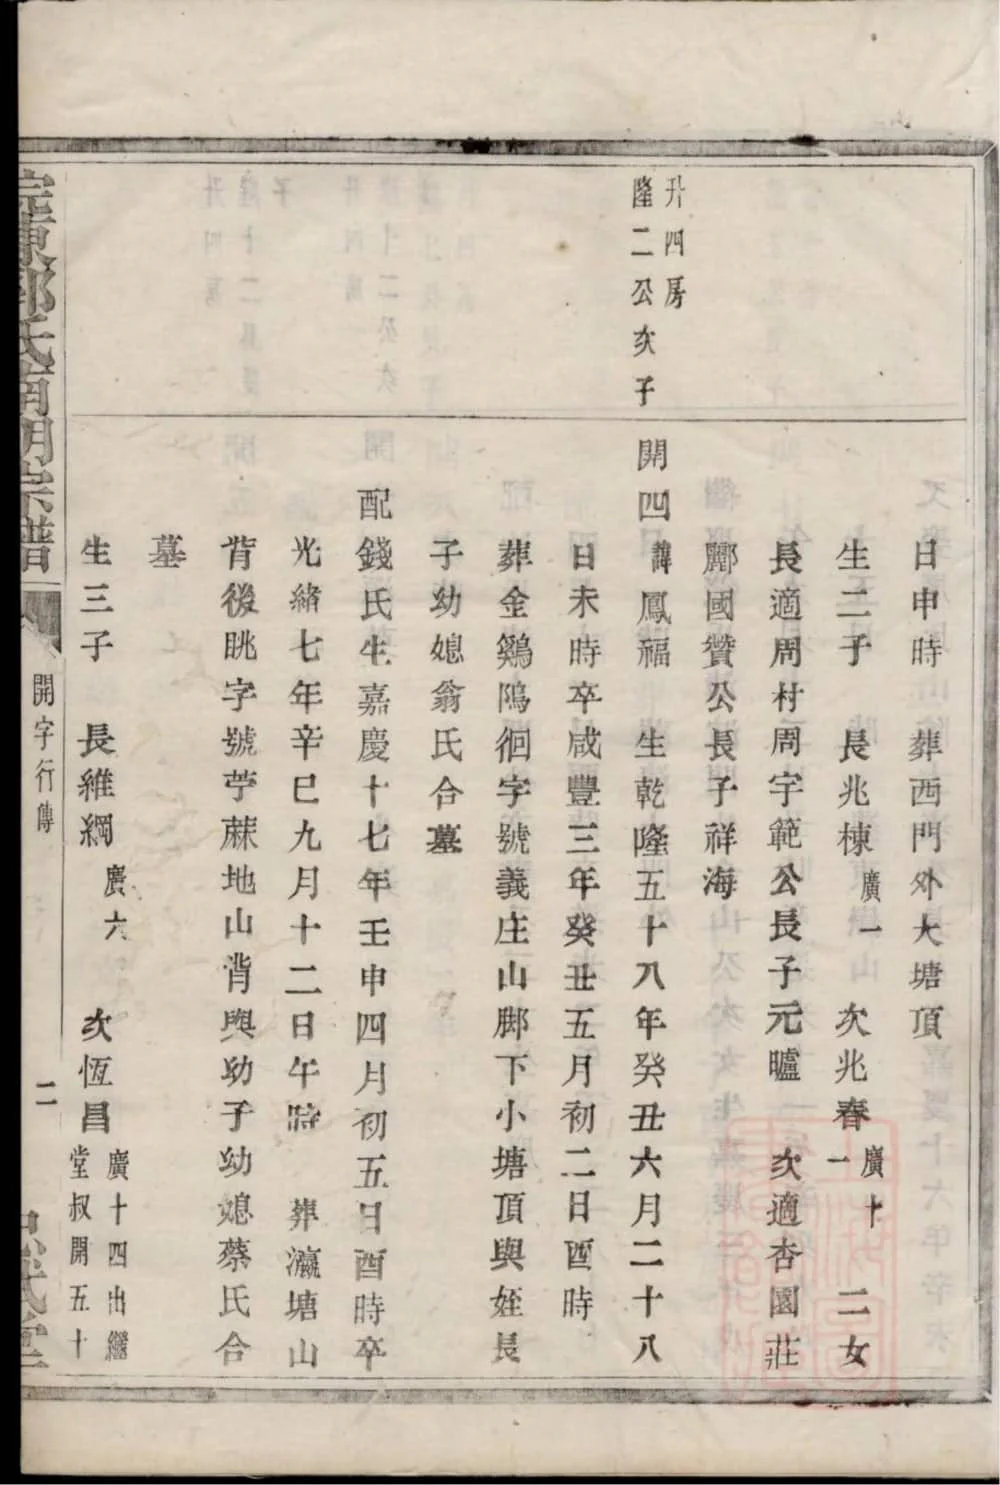 升四房
隆二公次子
日申時 葬西門外大塘頂
生二子 長兆棟 廣一 次兆春 廣十一 二女
長適周村周宇範公長子元曥 次適杏園莊
酈國贊公長子祥海
開四 諱鳳福 生乾隆五十八年癸丑六月二十八
日未時卒咸豐三年癸丑五月初二日酉時
葬金鷄隝徊字號義庄山脚下小塘頂與姪長
子幼媳翁氏合墓
配錢氏生嘉慶十七年壬申四月初五日酉時卒
光緒七年辛巳九月十二日午時 葬瀛塘山
背後眺字號苧蔴地山背與幼子幼媳蔡氏合
墓
生三子 長維綱 廣六 次恆昌 廣十四出繼堂叔開五十
氏南湖宗譜
開字行傳
二